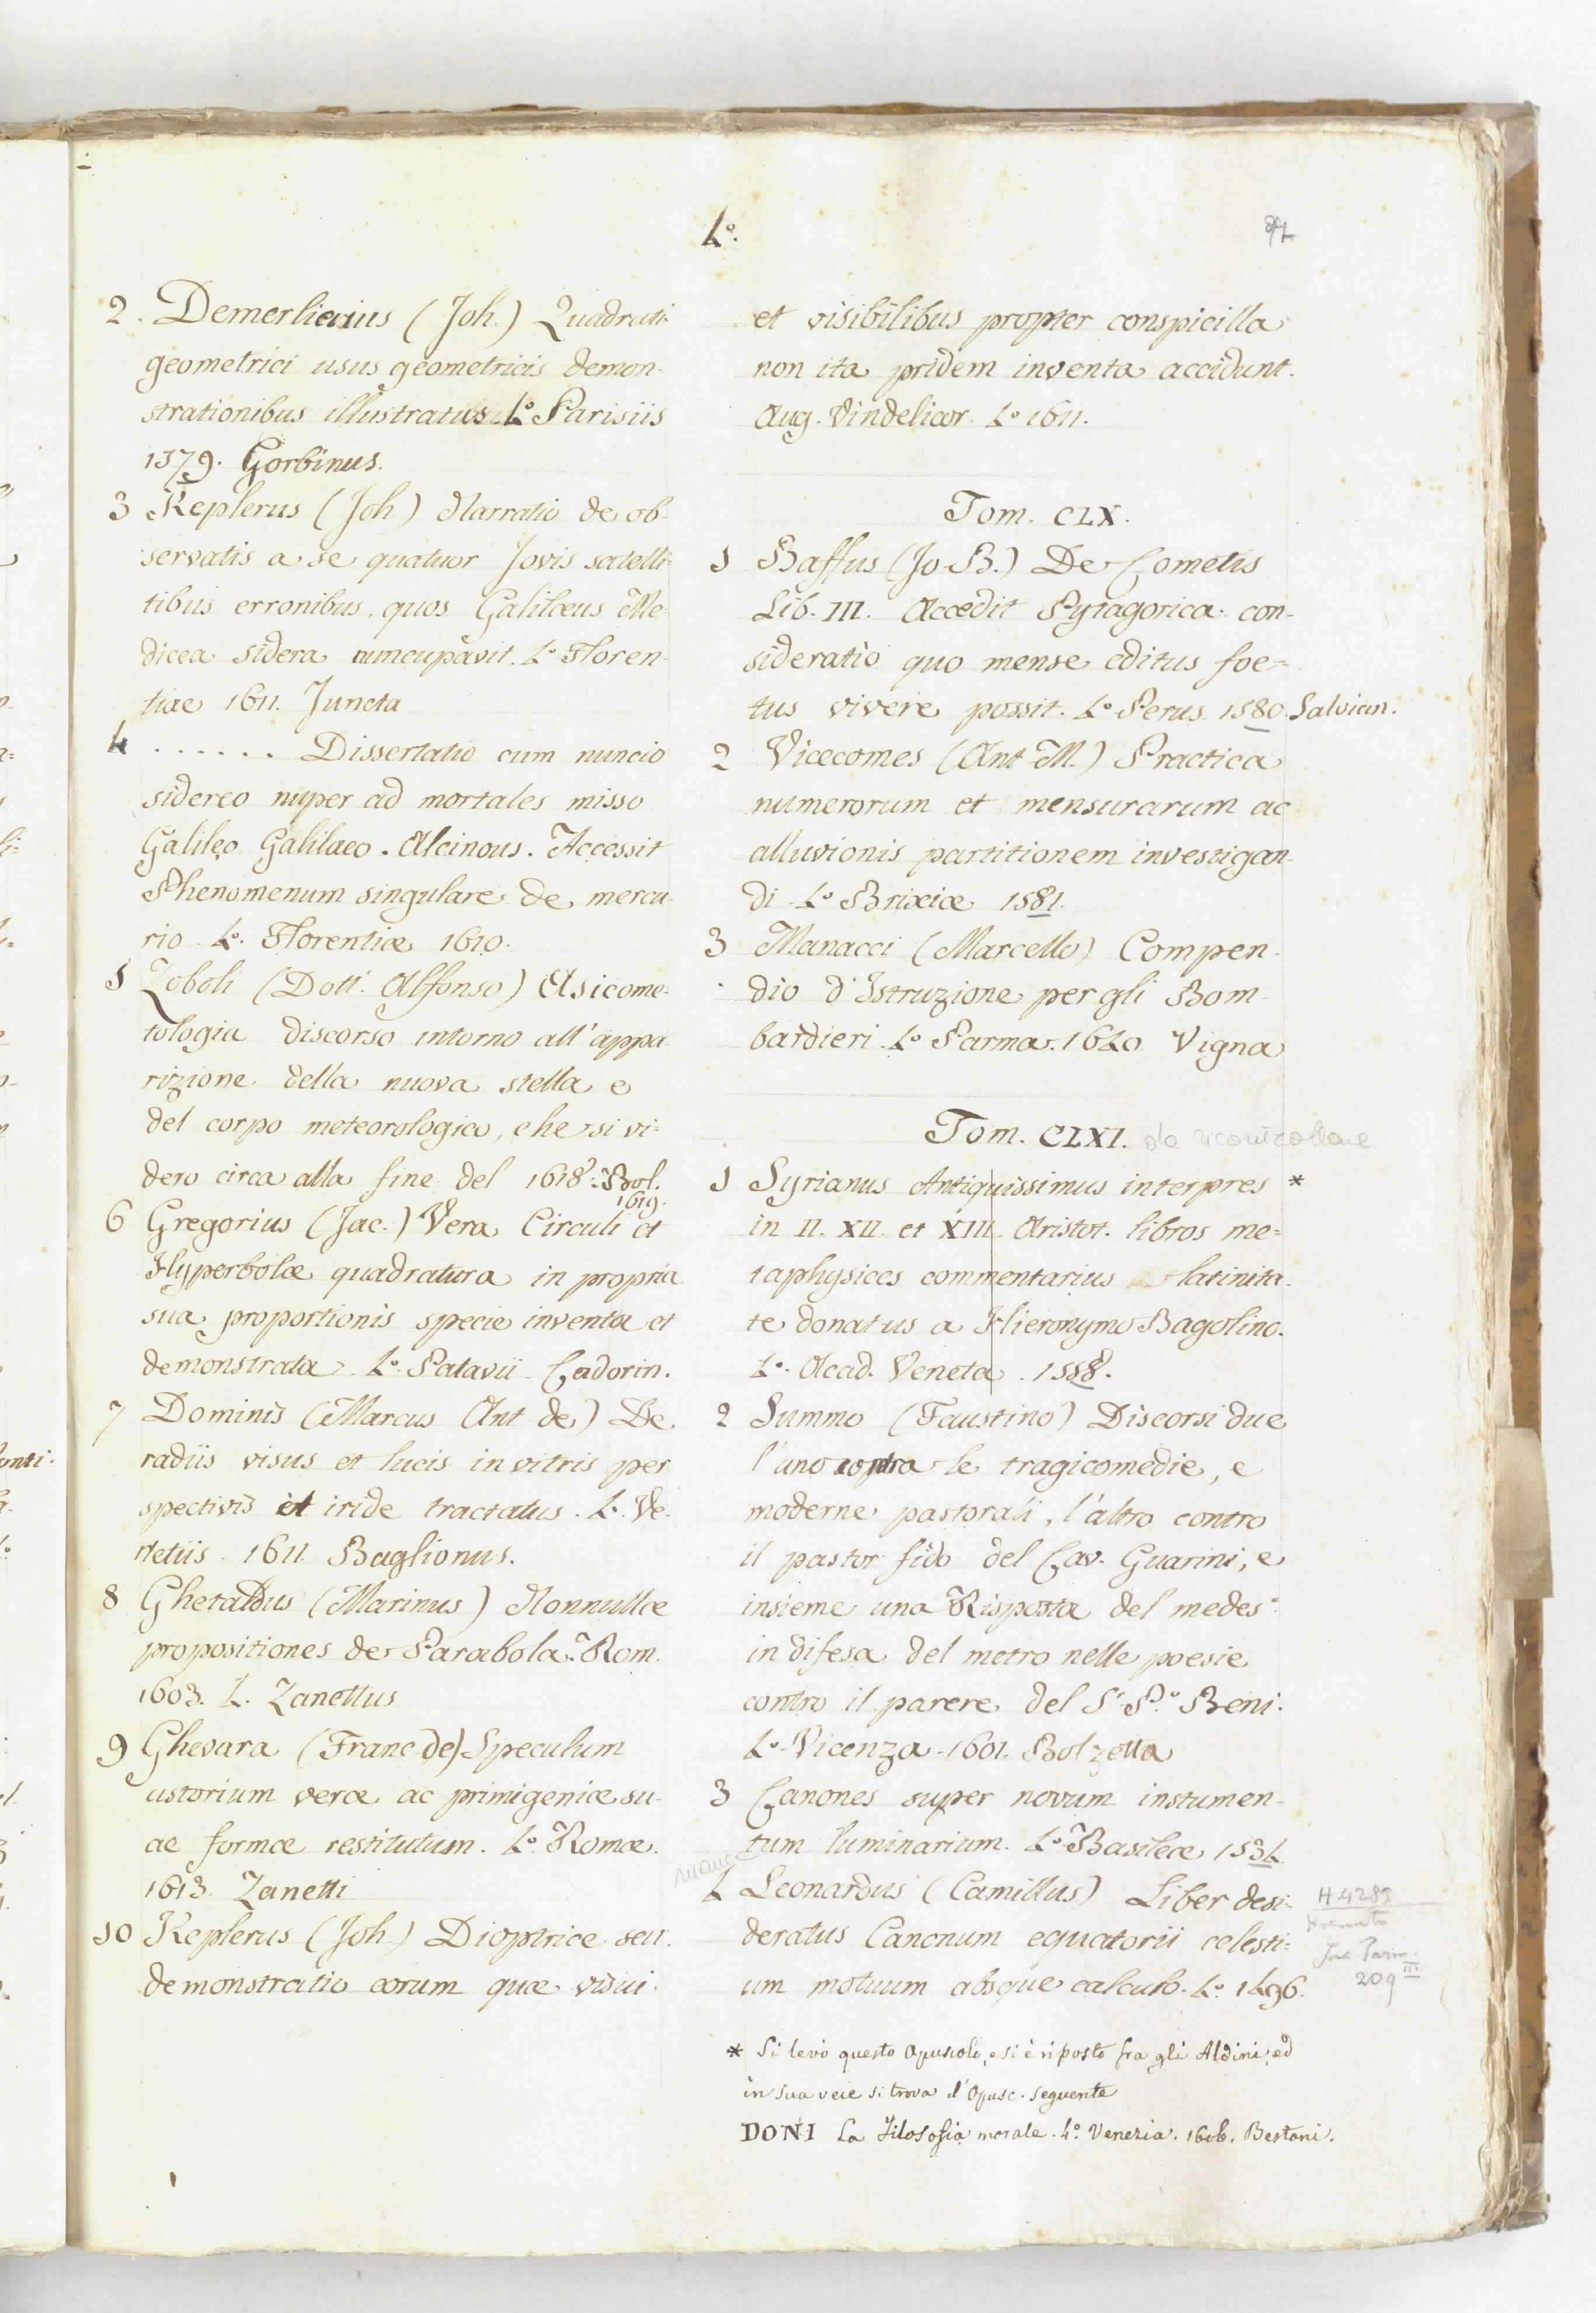 4.º
2. Demerlierius (Joh.) Quadrati
geometrici usus geometricis demon-
strationibus illustratus 4.º Parisiis
1579. Gorbinus.
3 Keplerus (Joh) Narratio de ob-
servatis a se quatuor Jovis satelli-
tibus erronibus, quos Galilæus Me-
dicea sidera nuncupavit. 4.º Floren-
tiae 1611. Juncta
4 . . . . . . Dissertatio cum nuncio
sidereo nuper ad mortales misso
Galileo Galilaeo. Alcinous. Accessit
Phenomenum singulare de mercu-
rio 4.º Florentiæ 1610.
5 Zoboli (Dott. Alfonso) Asicome-
tologia discorso intorno all'appa
rizione della nuova stella e
del corpo meteorologico, che si vi-
dero circa alla fine del 1618. Bol.
1619.
6 Gregorius (Jac.) Vera Circuli et
Hyperbolæ quadratura in propria
sua proportionis specie inventa et
demonstrata 4.º Patavii Cadorin.
7 Dominis (Marcus Ant de) De
radiis visus et lucis in vitris per
spectivis et iride tractatus. 4.º Ve-
netiis 1611. Baglionus.
8 Ghetaldus (Marinus) Nonnullæ
propositiones de Parabola. Rom.
1603. 4. Zanettus
9 Ghevara (Franc de) Speculum
ustorium veræ ac primigeniæ su-
ae formæ restitutum. 4.º Romæ
1613. Zanetti
10 Keplerus (Joh.) Dioptrice seu
demonstratio eorum quæ visui
et visibilibus propter conspicilla
non ita pridem inventa accidunt.
Aug. Vindelicor. 4.º 1611.
Tom. CLX.
1 Baffus (Jo. B.) De Cometis
Lib. III. Accedit Pytagorica con-
sideratio quo mense editus foe-
tus vivere possit. 4.º Perus. 1580. Salvian.
2 Vicecomes (Ant M.) Practica
numerorum et mensurarum ac
alluvionis partitionem investigan-
di 4.º Brixiæ 1581.
3 Manacci (Marcello) Compen-
dio d'Istruzione per gli Bom-
bardieri 4.º Parma. 1640 Vigna
Tom. CLXI. da ricontrollare
1 Syrianus Antiquissimus interpres *
in II. XII. et XIII. Aristot. libros me-
taphysices commentarius latinita-
te donatus a Hieronymo Bagolino.
4.º Acad. Veneta. 1558.
2 Summo (Faustino) Discorsi due
l'uno contra le tragicomedie, e
moderne pastorali, l'altro contro
il pastor fido del Cav. Guarini, e
insieme una Risposta del medes.º
in difesa del metro nelle poesie
contro il parere del S.r P.º Beni.
4.º Vicenza 1601. Bolzetta
3 Canones super novum instumen-
tum luminarium. 4.º Basileæ 1534
manca
4 Leonardus (Camillus) Liber desi-
deratus Canonum equatorii celesti-
um motuum absque calculo. 4.º 1496.
H. 4283
Inc. Parm.
209 III
* Si levò questo Opuscolo, e si è riposto fra gli Aldini, ed
in sua vece si trova l'Opusc. seguente
DONI La Filosofia morale. 4.º Venezia. 1606. Bertoni.